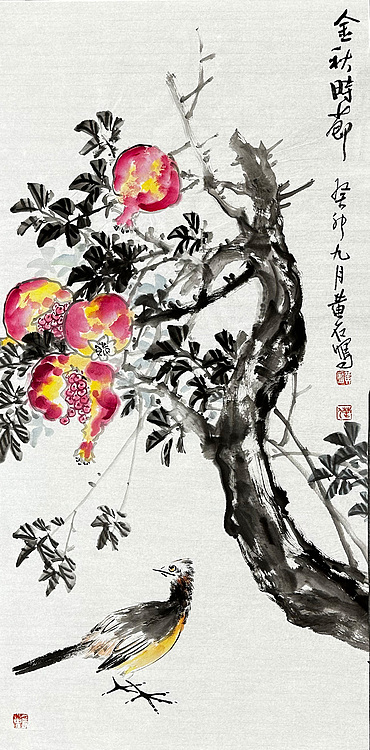 金秋時節
癸卯九月黄石寫